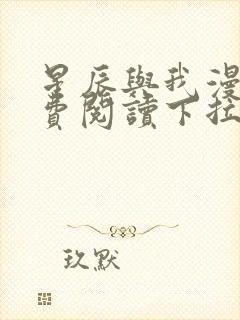 星辰與我漫
費閱讀下拉
玖默